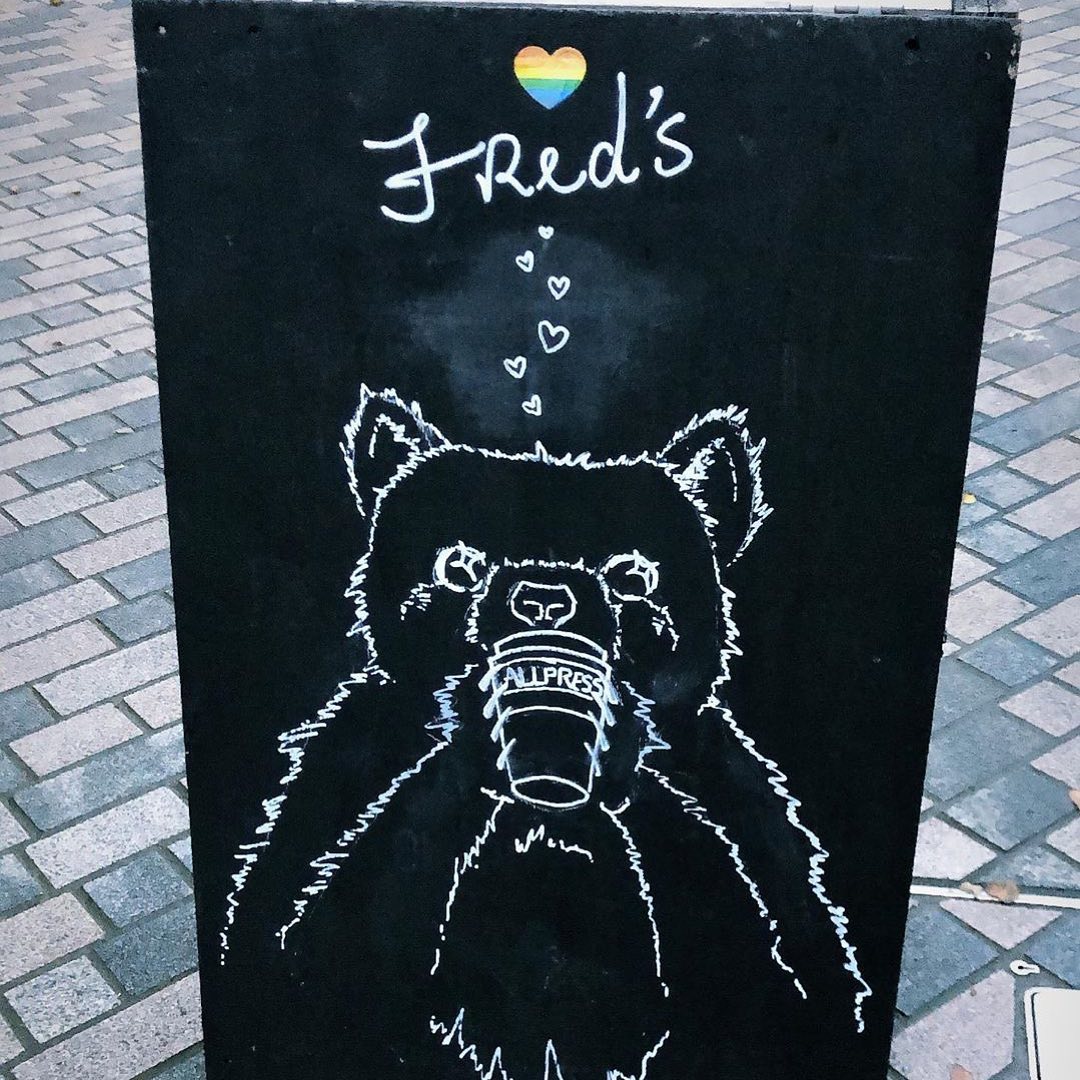 Fred's
ALLPRESS